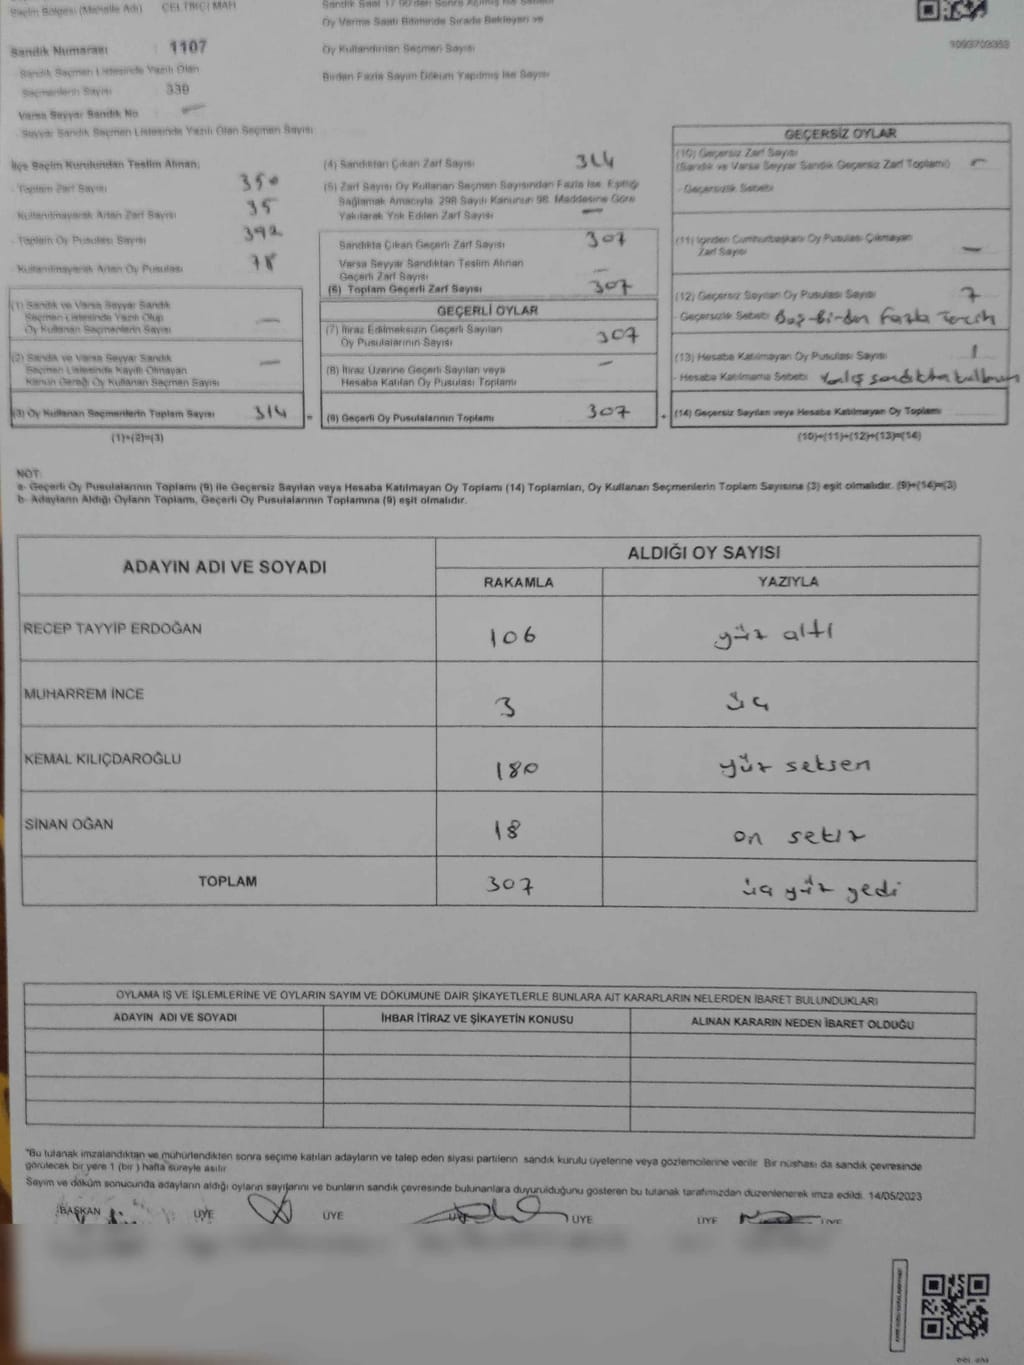 Seçim Bölgesi (Mahalle Adı) ÇELTİKÇİ MAH
Oy Verme Saati Bitiminde Sırada Bekleyen ve
Oy Kullandırılan Seçmen Sayısı
Birden Fazla Sayım Döküm Yapılmış İse Sayısı
1093703353
Sandık Numarası : 1107
- Sandık Seçmen Listesinde Yazılı Olan
Seçmenlerin Sayısı : 339
Varsa Seyyar Sandık No —
- Seyyar Sandık Seçmen Listesinde Yazılı Olan Seçmen Sayısı
İlçe Seçim Kurulundan Teslim Alınan;
- Toplam Zarf Sayısı 350
- Kullanılmayarak Artan Zarf Sayısı 35
- Toplam Oy Pusulası Sayısı 392
- Kullanılmayarak Artan Oy Pusulası 78
(1) Sandık ve Varsa Seyyar Sandık
Seçmen Listesinde Yazılı Olup
Oy Kullanan Seçmenlerin Sayısı —
(2) Sandık ve Varsa Seyyar Sandık
Seçmen Listesinde Kayıtlı Olmayan
Kanun Gereği Oy Kullanan Seçmen Sayısı —
(3) Oy Kullanan Seçmenlerin Toplam Sayısı 314
(1)+(2)=(3)
(4) Sandıktan Çıkan Zarf Sayısı 314
(5) Zarf Sayısı Oy Kullanan Seçmen Sayısından Fazla İse, Eşitliği
Sağlamak Amacıyla, 298 Sayılı Kanunun 98. Maddesine Göre
Yakılarak Yok Edilen Zarf Sayısı —
Sandıkta Çıkan Geçerli Zarf Sayısı 307
Varsa Seyyar Sandıktan Teslim Alınan
Geçerli Zarf Sayısı —
(6) Toplam Geçerli Zarf Sayısı 307
GEÇERLİ OYLAR
(7) İtiraz Edilmeksizin Geçerli Sayılan
Oy Pusulalarının Sayısı 307
(8) İtiraz Üzerine Geçerli Sayılan veya
Hesaba Katılan Oy Pusulası Toplamı —
= (9) Geçerli Oy Pusulalarının Toplamı 307
GEÇERSİZ OYLAR
(10) Geçersiz Zarf Sayısı
(Sandık ve Varsa Seyyar Sandık Geçersiz Zarf Toplamı) —
- Geçersizlik Sebebi
(11) İçinden Cumhurbaşkanı Oy Pusulası Çıkmayan
Zarf Sayısı —
(12) Geçersiz Sayılan Oy Pusulası Sayısı 7
- Geçersizlik Sebebi Boş-birden fazla tercih
(13) Hesaba Katılmayan Oy Pusulası Sayısı 1
- Hesaba Katılmama Sebebi Yanlış sandıkta
+ (14) Geçersiz Sayılan veya Hesaba Katılmayan Oy Toplamı
(10)+(11)+(12)+(13)=(14)
NOT:
a- Geçerli Oy Pusulalarının Toplamı (9) ile Geçersiz Sayılan veya Hesaba Katılmayan Oy Toplamı (14) Toplamları, Oy Kullanan Seçmenlerin Toplam Sayısına (3) eşit olmalıdır. (9)+(14)=(3)
b- Adayların Aldığı Oyların Toplamı, Geçerli Oy Pusulalarının Toplamına (9) eşit olmalıdır.
ADAYIN ADI VE SOYADI
ALDIĞI OY SAYISI
RAKAMLA YAZIYLA
RECEP TAYYİP ERDOĞAN 106 yüz altı
MUHARREM İNCE 3 üç
KEMAL KILIÇDAROĞLU 180 yüz seksen
SİNAN OĞAN 18 on sekiz
TOPLAM 307 üç yüz yedi
OYLAMA İŞ VE İŞLEMLERİNE VE OYLARIN SAYIM VE DÖKÜMÜNE DAİR ŞİKAYETLERLE BUNLARA AİT KARARLARIN NELERDEN İBARET BULUNDUKLARI
ADAYIN ADI VE SOYADI İHBAR İTİRAZ VE ŞİKAYETİN KONUSU ALINAN KARARIN NEDEN İBARET OLDUĞU
*Bu tutanak imzalandıktan ve mühürlendikten sonra seçime katılan adayların ve talep eden siyasi partilerin sandık kurulu üyelerine veya gözlemcilerine verilir. Bir nüshası da sandık çevresinde
görülecek bir yere 1 (bir) hafta süreyle asılır.
Sayım ve döküm sonucunda adayların aldığı oyların sayılarını ve bunların sandık çevresinde bulunanlara duyurulduğunu gösteren bu tutanak tarafımızdan düzenlenerek imza edildi. 14/05/2023
BAŞKAN ÜYE ÜYE ÜYE ÜYE ÜYE ÜYE